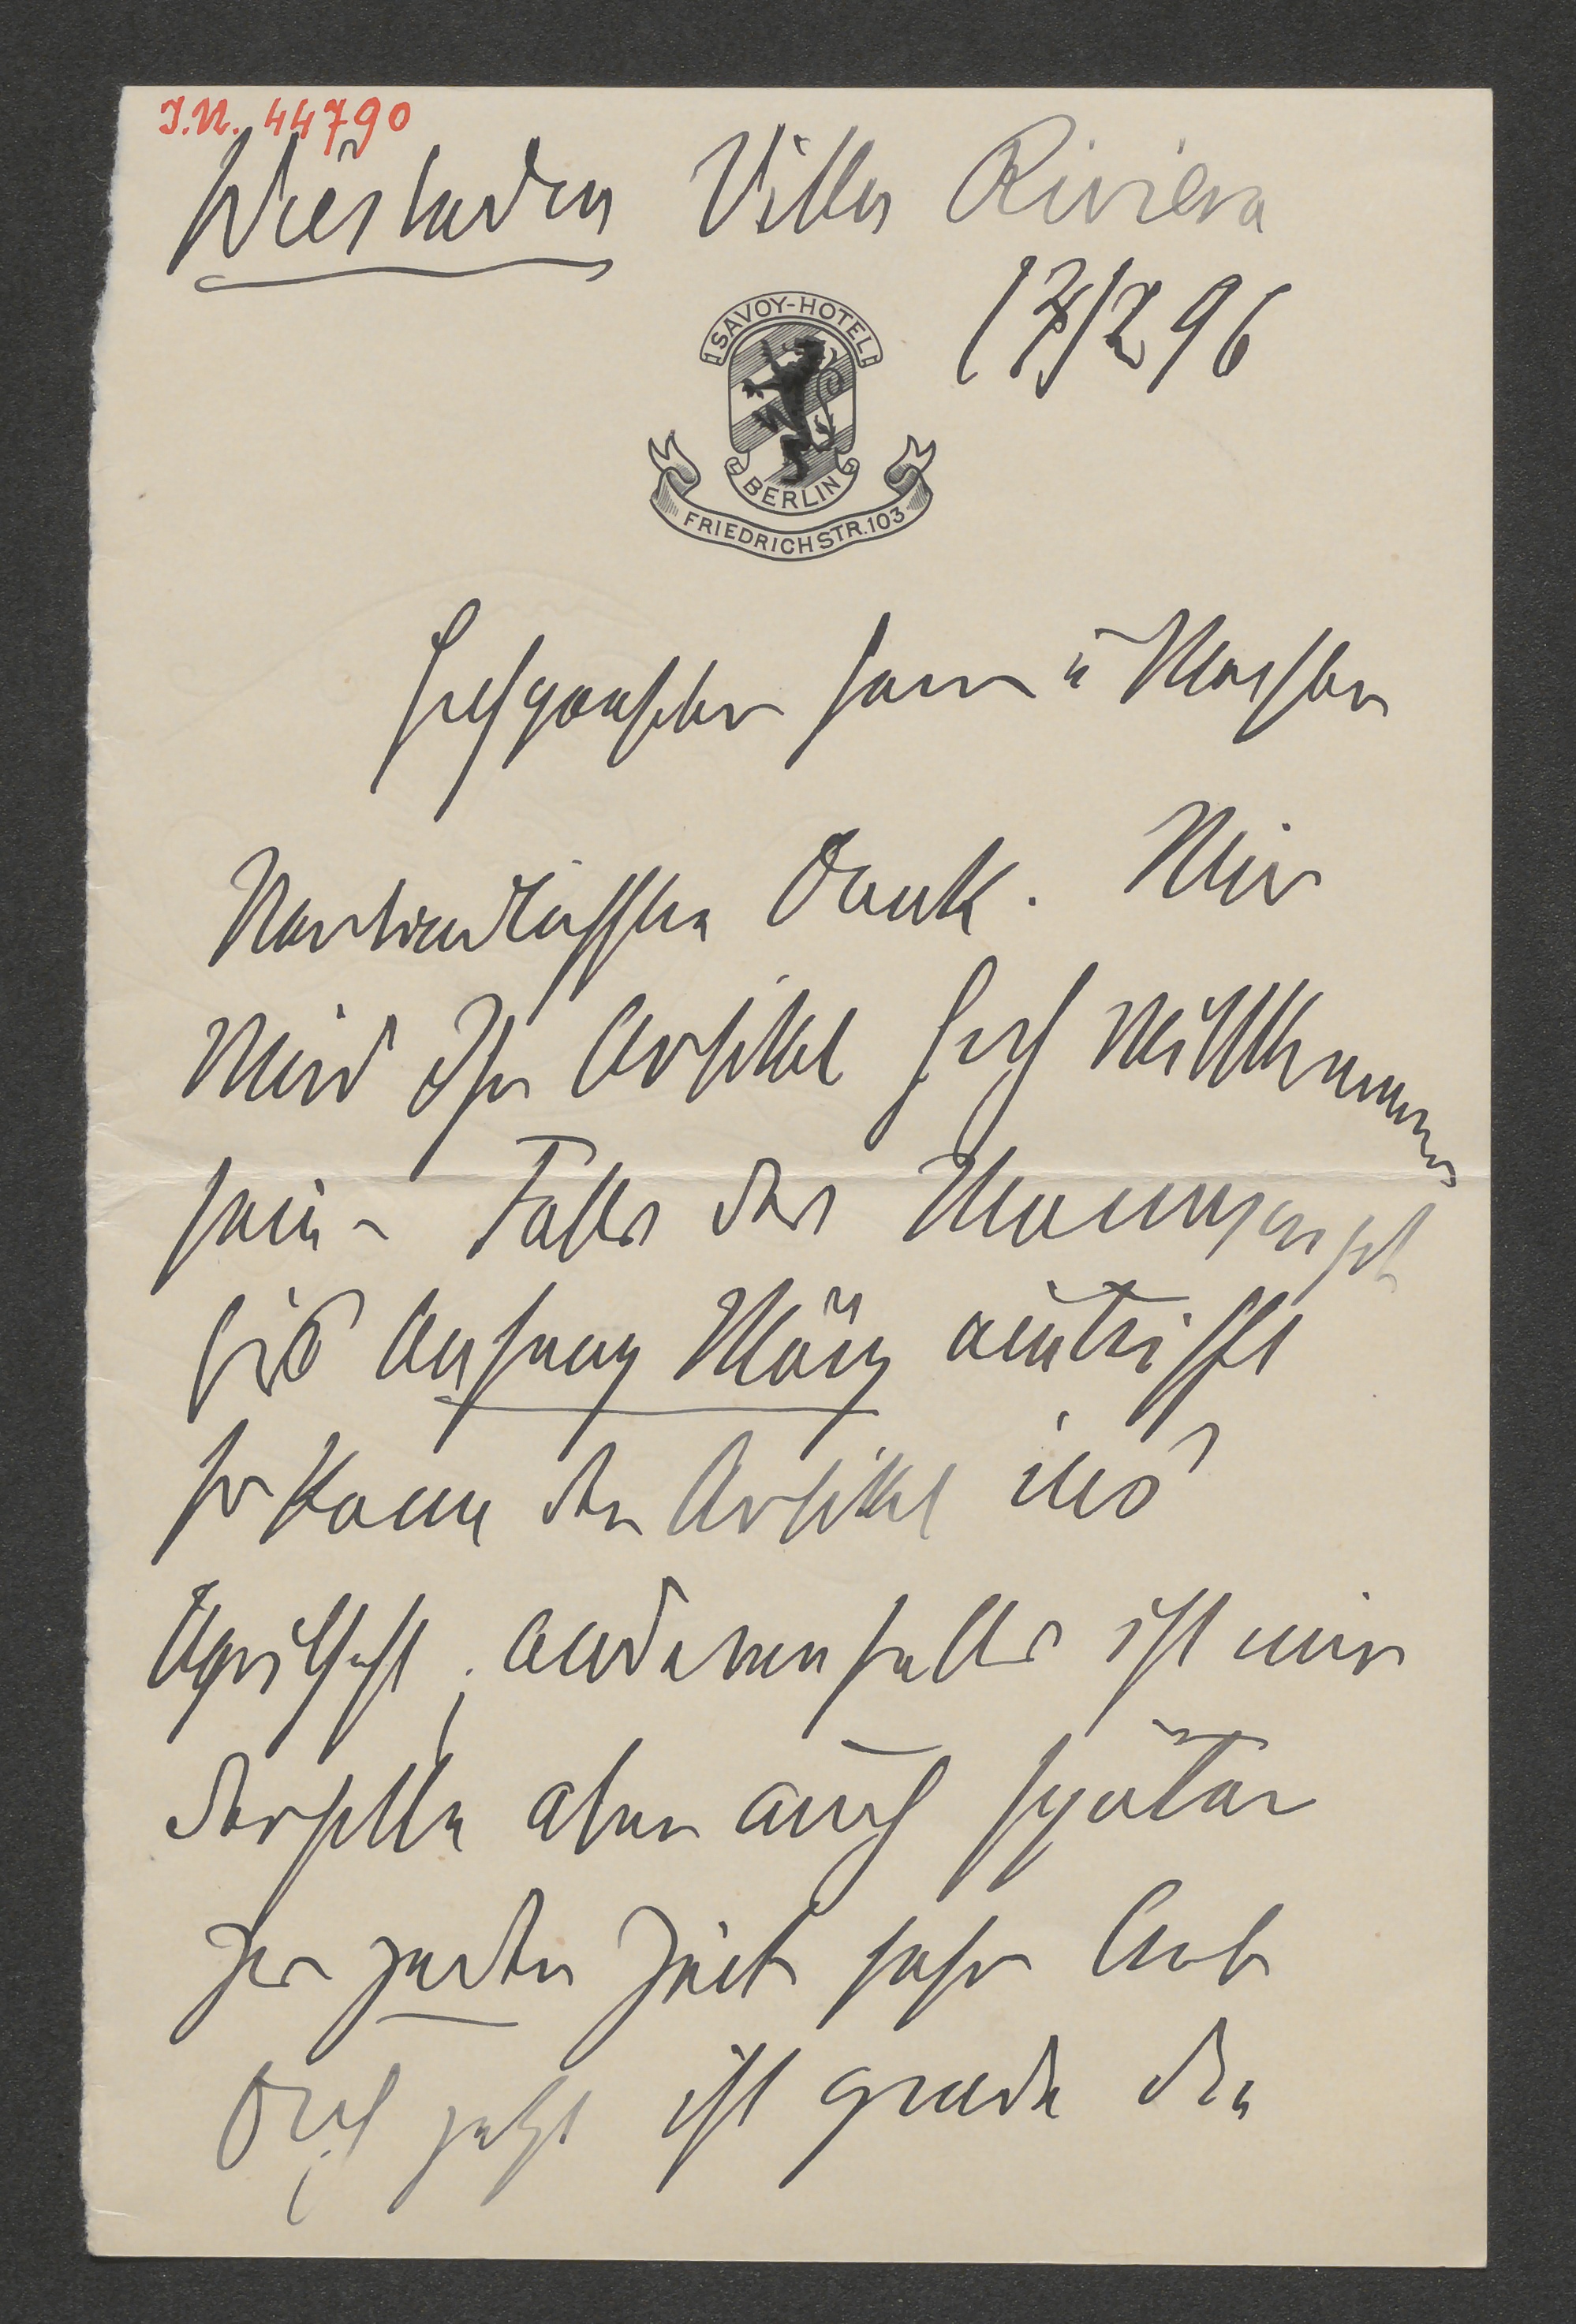 J.N. 44790
Wiesbaden Villa Riviera
17/2 96
SAVOY-HOTEL
BERLIN
FRIEDRICHSTR. 103
Hochgeehrter Herr u Meister
Verbindlichsten Dank. Mir
wird Ihr Artikel hoch willkommen
sein – Falls das Manuscript
bis Anfang März eintrifft
so kann der Artikel ins
Aprilheft, anderenfalls ist mir
derselbe aber auch später
zu jeder Zeit sehr lieb
Doch jetzt ist grade der